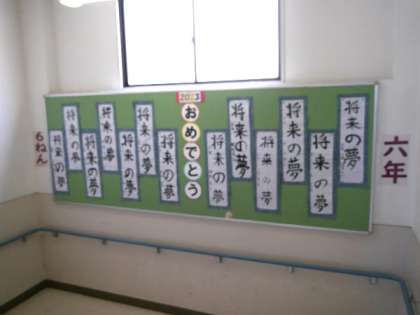 6ねん
将来の夢
将来の夢
将来の夢
将来の夢
将来の夢
将来の夢
将来の夢
2013
おめでとう
将来の夢
将来の夢
将来の夢
将来の夢
将来の夢
将来の夢
六年